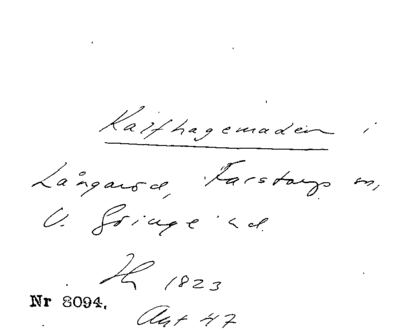 Kalfhagemaden i
Långaröd, Farstorps sn,
V. Göinge hd.
1823
Nr 8094.
Akt 47